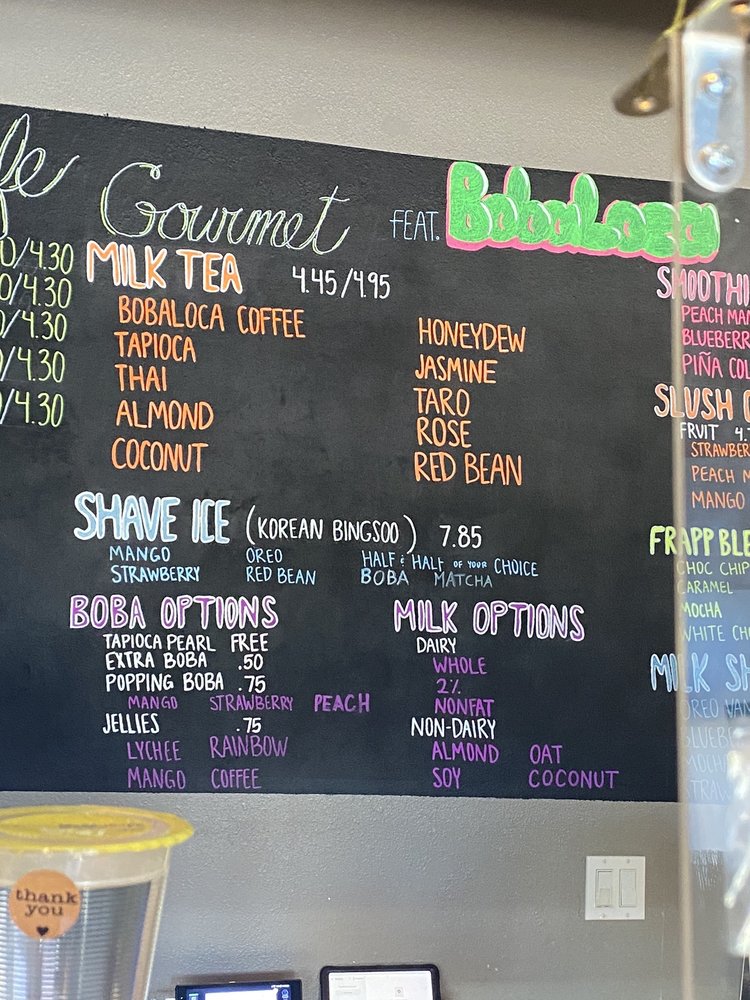 Gourmet FEAT. BobaLoca
/4.30
/4.30
/4.30
/4.30
/4.30
MILK TEA 4.45/4.95
BOBALOCA COFFEE
TAPIOCA
THAI
ALMOND
COCONUT
HONEYDEW
JASMINE
TARO
ROSE
RED BEAN
SHAVE ICE (KOREAN BINGSOO) 7.85
MANGO OREO HALF & HALF OF YOUR CHOICE
STRAWBERRY RED BEAN BOBA MATCHA
BOBA OPTIONS
TAPIOCA PEARL FREE
EXTRA BOBA .50
POPPING BOBA .75
MANGO STRAWBERRY PEACH
JELLIES .75
LYCHEE RAINBOW
MANGO COFFEE
MILK OPTIONS
DAIRY
WHOLE
2%
NONFAT
NON-DAIRY
ALMOND OAT
SOY COCONUT
SMOOTHI
PEACH MAN
BLUEBERR
PIÑA COL
SLUSH
FRUIT 4.
STRAWBER
PEACH M
MANGO
FRAPP BLE
CHOC CHIP
CARAMEL
MOCHA
WHITE CHO
MILK SH
OREO VAN
BLUEBE
MOCHA
STRAW
thank
you